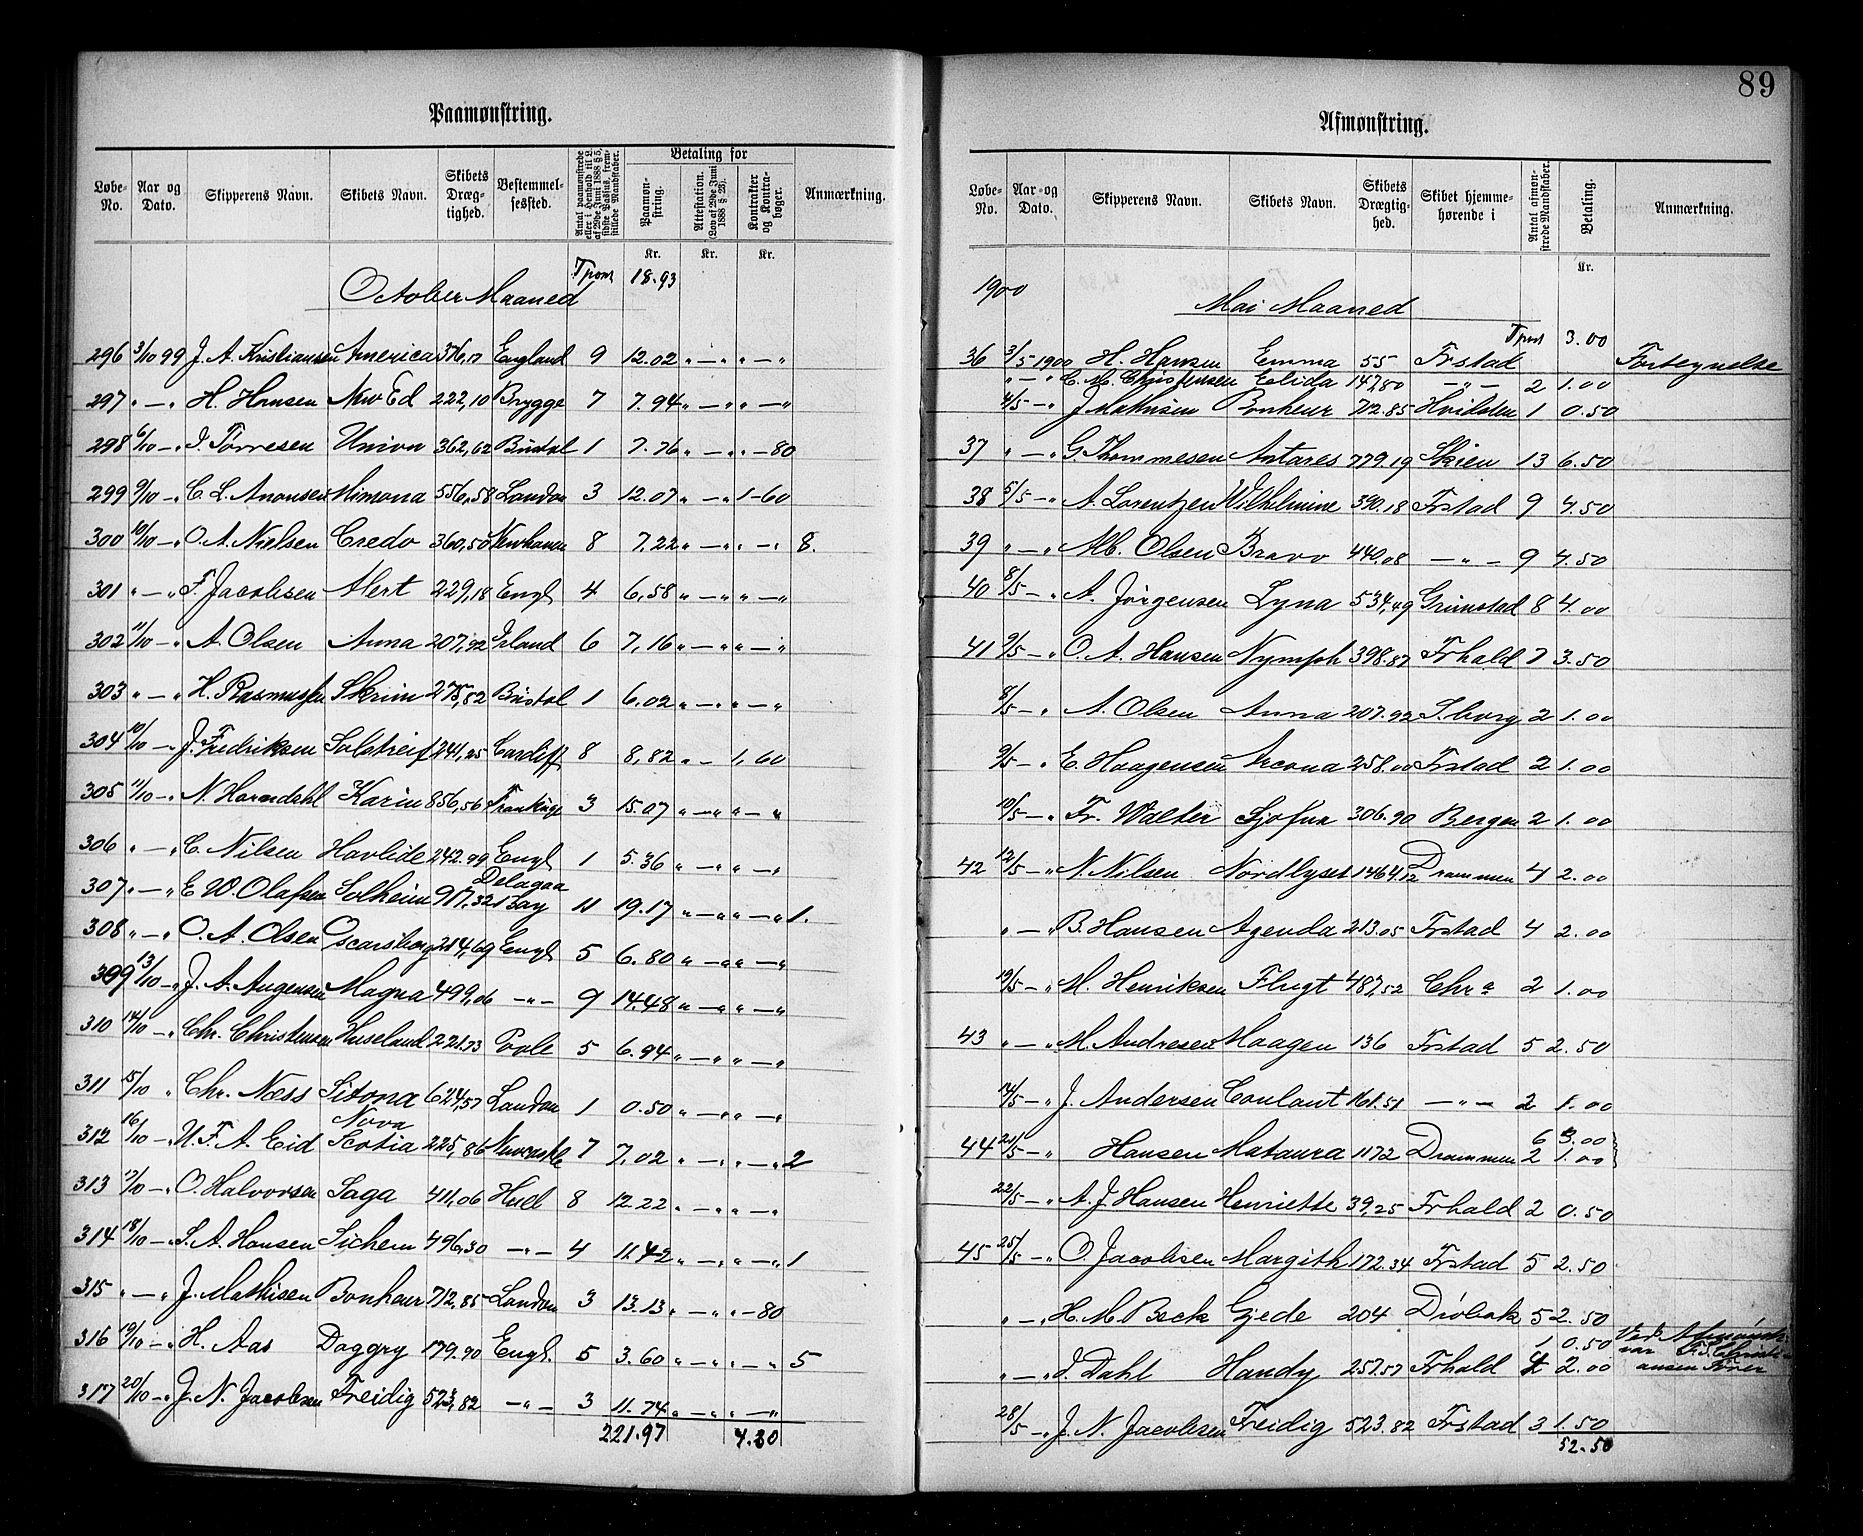 89
Paamønstring.
Løbe-No. Aar og Dato. Skipperens Navn. Skibets Navn. Skibets Dræg-tighed. Bestemmel-sessted. Antal paamønstrede eller i Henhold til L. af 29de Juni 1888 § 5, sidste Passus, frem-stillede Mandskaber. Betaling for Paamøn-string. Attestation. (Lov af 29de Juni 1888 § 23). Kontrakter og Kontra-bøger. Anmærkning.
Kr. Kr. Kr.
Tpont 18.93
October Maaned
296 3/10 99 J. A. Kristiansen America 376,17 England 9 12.02 " — " " — "
297 " — " H. Hansen New Ed 222,10 Brygge 7 7.94 " — " " — "
298 6/10 — " I. Torresen Union 362,62 Bristol 1 7.76 " — " " — 80
299 9/10 — " C. L. Anonsen Mimona 556,58 London 3 12.07 " — " 1 — 60
300 10/10 — " O. A. Nielsen Credo 360,50 Newhaven 8 7.22 " — " " — " 8.
301 " — " F. Jacobsen Alert 229,18 Engl 4 6,58 " — " " — "
302 11/10 — " A. Olsen Anna 207,92 Irland 6 7,16 " — " " — "
303 " — " H. Rasmussen Skrim 275,82 Bristol 1 6.02 " — " " — "
304 10/10 — " J. Fredriksen Solstreif 241,25 Cardiff 8 8,82 " — 1,60
305 11/10 — " N. Harendahl Karin 856,56 3 15.07 " — " " — "
306 " — " C. Nilsen Havlide 242.99 Engl 1 5.36 " — " " — "
307 " — " E W. Olafsen Solheim 917,32 Delagoa Bay 11 19.17 " — " " — " 1.
308 " — " O. A. Olsen Oscarsborg 214,69 Engl 5 6.80 " — " " — "
309 13/10 — " J. A. Augensen Magna 499,06 — " — 9 14.48 " — " " — "
310 14/10 — " Chr. Christensen Huseland 221.73 Poole 5 6.94 " — " " — "
311 15/10 " Chr. Næss Sitona 624,57 London 1 0.50 " — " " — "
312 16/10 — " U. F. A. Eid Nova Scotia 225,86 Newcastle 7 7,02 " — " " — " 2
313 17/10 — " O. Halvorsen Saga 411,06 Hul 8 12.22 " — " " — "
314 18/10 — " S. A. Hansen Sichem 496,30 — " — 4 11.42 " — " " — " 1
315 " — " J. Mathisen Bonheur 712,85 London 3 13.13 " — " " — 80
316 19/10 — " H. Aas Daggry 179.90 Engl. 5 3.60 " — " " — " 5
317 20/10 — " J. N. Jacobsen Freidig 523,82 — " — 3 11.74 " — " " — "
221.97 4.80
Afmønstring.
Løbe-No. Aar og Dato. Skipperens Navn. Skibets Navn. Skibets Drægtig-hed. Skibet hjemme-hørende i Antal afmøn-strede Mandskaber. Betaling. Anmærkning.
Kr.
1900
Mai Maaned
Tpont 3.00
36 3/5 1900 H. Hansen Emma 55 Frstad Fortegnelse
" — " C. M. Christensen Eolida 147,80 — " — 2 1.00
4/5 — " J. Mathisen Bonheur 712.85 Hvidsten 1 0.50
37 " — " G. Thommesen Antares 779.19 Skien 13 6.50
38 5/5 — " A. Lorentzen Wilhelmine 390.18 Frstad 9 4.50
39 " — " Alb. Olsen Bravo 440.08 — " — 9 4.50
40 8/5 — " A. Jörgensen Lyna 534,49 Grimstad 8 4.00
41 9/5 — " O. A. Hansen Nymph 398.87 Frhald 7 3.50
8/5 — " A. Olsen Anna 207.92 S.borg 2 1.00
9/5 — " E. Haagensen Ancona 258.00 Frstad 2 1.00
10/5 — " Fr. Walter Sjofna 306.90 Bergen 2 1.00
42 12/5 — " N. Nilsen Nordlyset 1464.12 Drammen 4 2.00
" — " B. Hansen Agenda 213.05 Frstad 4 2.00
19/5 — " M. Henriksen Flugt 487,52 Chra 2 1.00
43 " — " M. Andresen Maagen 136 Frstad 5 2.50
14/5 — " J. Andersen Coulant 161.51 — " — 2 1.00
44 21/5 — " Hansen Mataura 1172 Drammen 6 3.00
2 1.00
22/5 — " A. J. Hansen Henriette 39,25 Frhald 2 0.50
45 25/5 — " O. Jacobsen Margith 172.34 Frstad 5 2.50
" — " H. M. Beck Gjede 204 Dröbak 5 2.50
1 0.50 Ved Afmönstr.
" — " I. Dahl Handy 257.57 Frhald 4 2.00 var Christiansen Förer
28/5 — " J. N. Jacobsen Freidig 523.82 Frstad 3 1.50
52.50